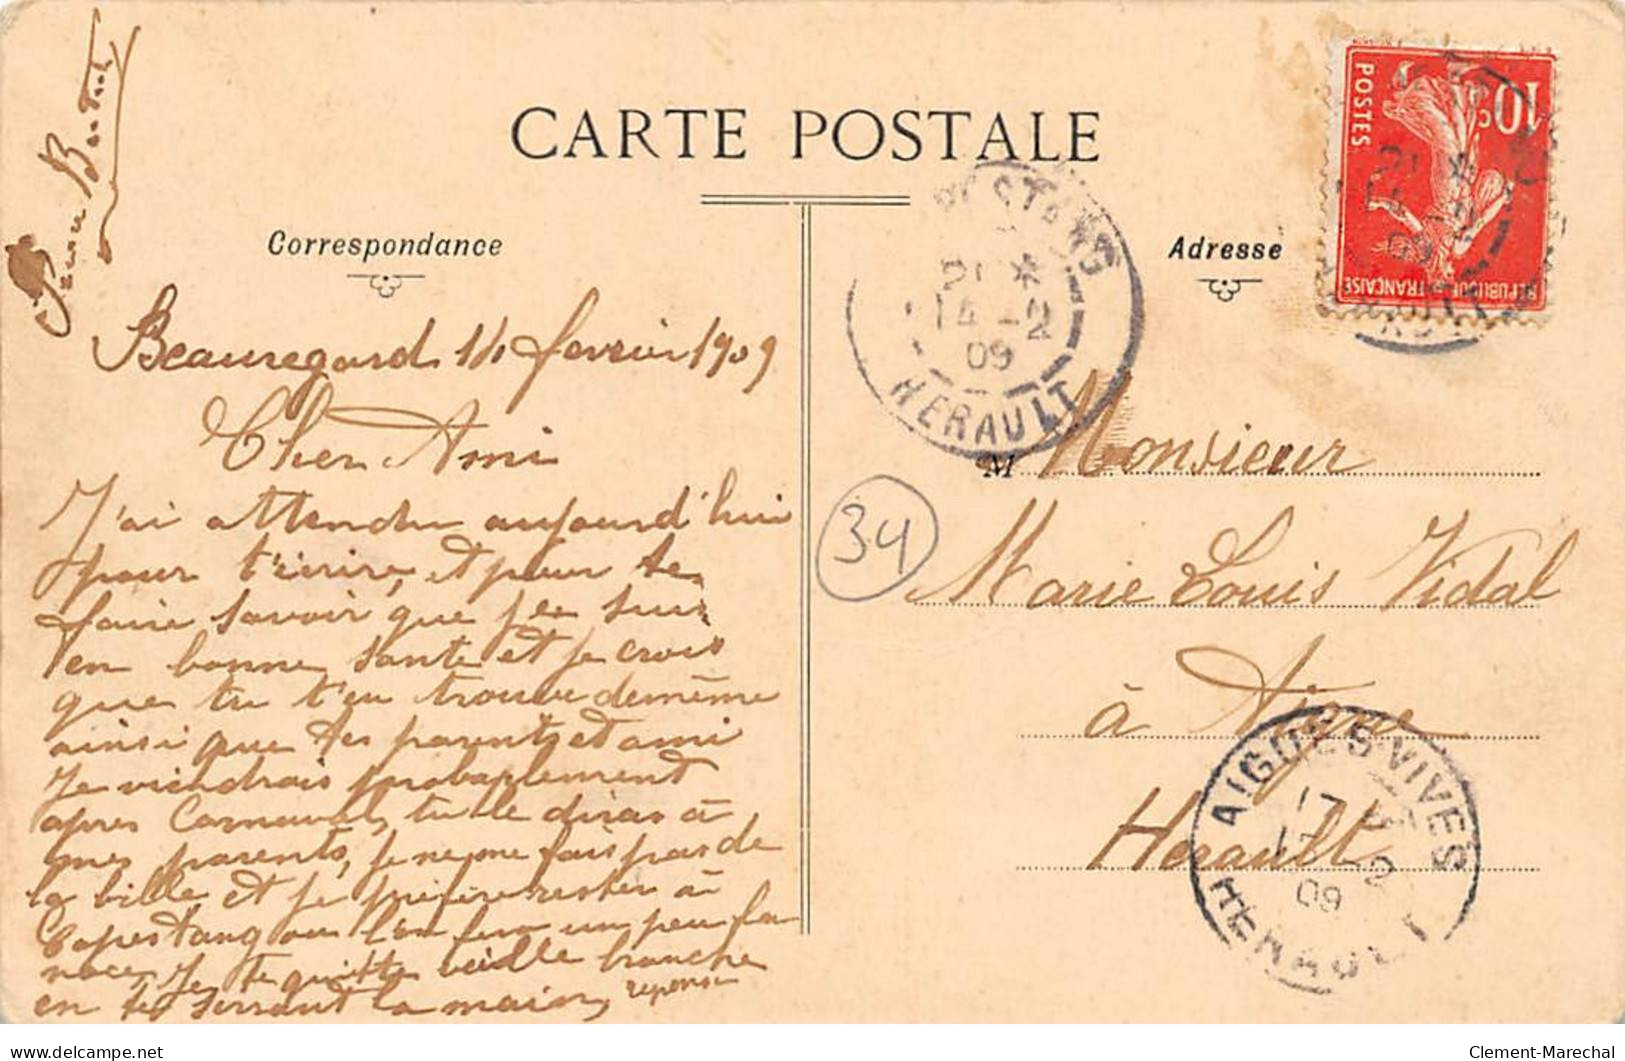 CARTE POSTALE
Correspondance
Beauregard 14 fevrier 1909
Cher Ami
J'ai attendu aujourd'hui
pour t'ecrire, et pour te
faire savoir que je suis
en bonne sante et je crois
que tu t'en trouve de même
ainsi que tes parents et ami
Je viendrais probaplement
apres Carnaval, tu le diras à
mes parents, je ne me fais pas de
la bille et je préfère rester à
Capestang ou l'on fera un peu la
noce, Je te quitte vieille branche
en te serrant la main, reponse
Adresse
10c
POSTES
REPUBLIQUE FRANCAISE
CAPESTANG
14 - 2
09
HERAULT
M Monsieur
34
Marie Louis Vidal
à Aigne
Herault
AIGUES-VIVES
17 - 2
09
HERAULT
Clement-Marechal